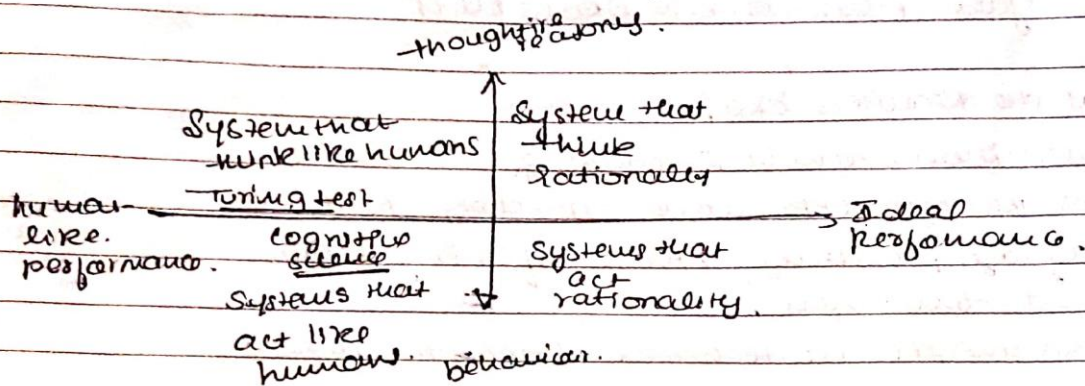 thought/reasons.
System that
think like humans
Turing test
System that
think
rationally
human
like.
performance.
Ideal
perfomance.
cognitive
science
Systems that
act like
humans.
Systems that
act
rationality.
behaviour.